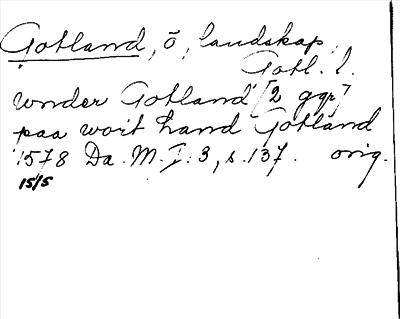 Gotland, ö, landskap.
Gotl. l.
wnder Gotland [2 ggr]
paa wort hand Gotland
1578 Da. M. I: 3, s. 137. orig.
15/5